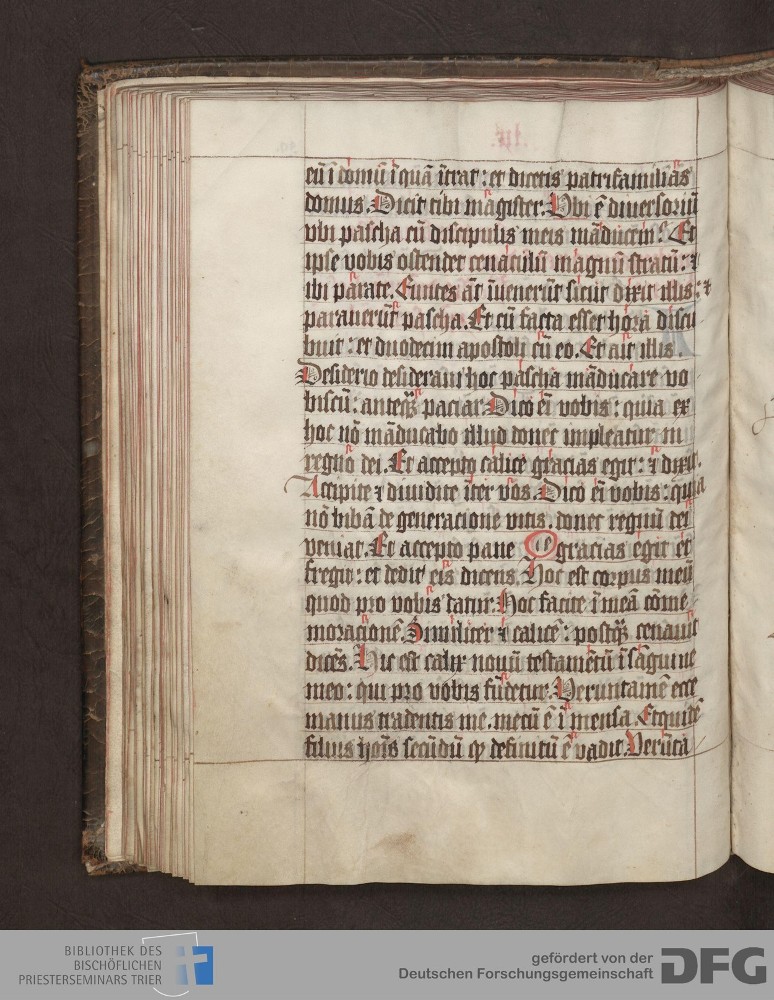 eū ī domū ī quā ītrat : et dicetis patrifamiliās
domus . Dicit tibi magister . Vbi ē diuersoriū
vbi pascha cū discipulis meis māducem ? Et
ipse vobis ostendet cenaculū magnū stratū : ⁊
ibi parate . Euntes aūt īuenerūt sicut dixit illis : ⁊
parauerūt pascha . Et cū facta esset hora discu
buit : et duodecim apostoli cū eo . Et ait illis .
Desiderio desideraui hoc pascha māducare vo
biscū : anteqȝ paciar . Dico eī vobis : quia ex
hoc nō māducabo illud donec impleatur in
regno dei . Et accepto calice gracias egit : ⁊ dixit .
Accipite ⁊ diuidite īter vos . Dico eī vobis : quia
nō bibā de generacione vitis . donec regnū dei
veniat . Et accepto pane gracias egit et
fregit : et dedit eis dicens . Hoc est corpus meū
quod pro vobis datur . Hoc facite ī meā cōme
moracionē . Similiter ⁊ calicē : postqȝ cenauit
dicēs . Hic est calix nouū testamētū ī sāguine
meo : qui pro vobis fūdetur . Veruntamē ecce
manus tradentis me . mecū ē ī mensa . Et quidē
filius hoīs secūdū qp definitū ē vadit . Verūta
BIBLIOTHEK DES
BISCHÖFLICHEN
PRIESTERSEMINARS TRIER
gefördert von der
Deutschen Forschungsgemeinschaft
DFG